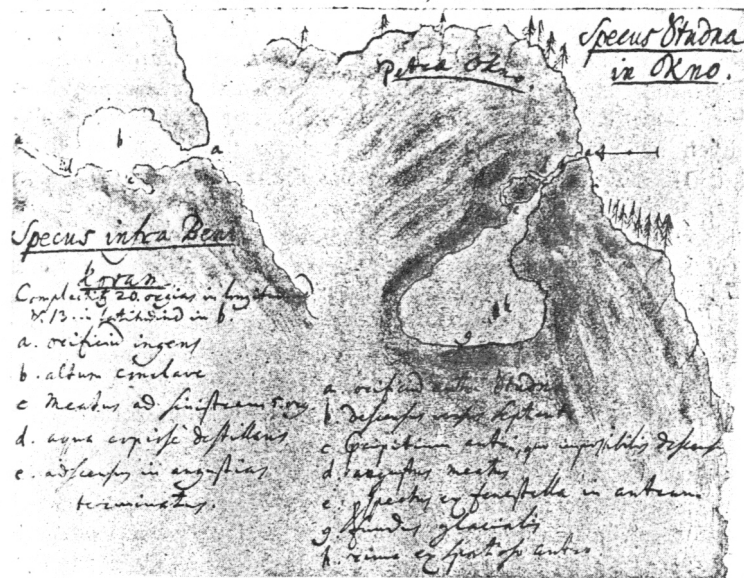 Specus Studna
in Okno.
Petra Okno.
a
b
c
d
a
g
h
Specus intra
Complectit 20. orgias in
& 13. in latitudine in b.
a. orificium ingens
b. altum conclave
c Meatus ad sinistram 5 org.
d. aqua copiose destillans
e. adscensus in angustias
terminatus.
a. orificium antri Studna
b. descensus versus
c. praecipitium antri, quo impossibilis descens
d. angustus meatus
e. ex fenestella in antrum
g. fundus glacialis
h. rima ex spatioso antro